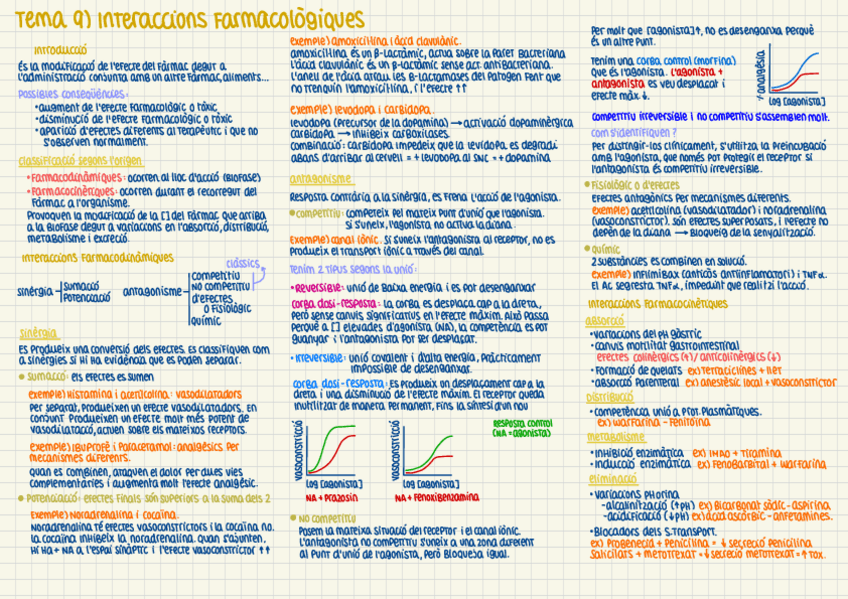 Tema 9) Interaccions Farmacològiques
Introducció
És la modificació de l'efecte del Fàrmac degut a
l'administració conjunta amb un altre Fàrmac, aliments...
Possibles conseqüències:
•augment de l'efecte Farmacològic o tòxic
•disminució de l'efecte Farmacològic o tòxic
•aparició d'efectes diferents al terapèutic i que no
s'observen normalment.
Classificació segons l'origen
•Farmacodinàmiques: ocorren al lloc d'acció (BIOFASE)
•Farmacocinètiques: ocorren durant el recorregut del
Fàrmac a l'organisme.
Provoquen la modificació de la [] del Fàrmac que arriba
a la BIOFASE degut a variacions en l'absorció, distribució,
metabolisme i excreció.
Interaccions Farmacodinàmiques
clàssics
sinèrgia
Sumació
Potenciació
antagonisme
Competitiu
No competitiu
d'efectes
o Fisiològic
Químic
sinèrgia
És Produeix una conversió dels efectes. Es classifiquen com
a sinèrgies si hi ha evidència que es poden separar.
• sumació: els efectes es sumen
exemple) Histamina i acetilcolina: vasodilatadors
Per separat, produeixen un efecte vasodilatadors. En
conjunt produeixen un efecte molt més potent de
vasodilatació, actuen sobre els mateixos receptors.
exemple) Ibuprofè i Paracetamol: analgèsics per
mecanismes diferents.
quan es combinen, ataquen el dolor per dues vies
complementàries i augmenta molt l'efecte analgèsic.
• Potenciació: efectes finals són superiors a la suma dels 2
Exemple) Noradrenalina i cocaïna.
Noradrenalina té efectes vasoconstrictors i la cocaïna no.
la cocaïna inhibeix la noradrenalina. Quan s'ajunten,
hi ha + NA a l'espai sinàptic i l'efecte vasoconstrictor ↑↑
exemple) amoxicil·lina i àcid clavulànic.
amoxicil·lina és un β-lactàmic, actua sobre la paret Bacteriana
l'àcid clavulànic és un β-lactàmic sense act. antibacteriana.
l'anell de l'àcid atrau les β-lactamases del patogen fent que
no trenquin l'amoxicil·lina, i l'efecte ↑↑
exemple) levodopa i carbidopa.
levodopa (precursor de la dopamina) → activació dopaminèrgica
carbidopa → inhibeix carboxilases.
combinació: carbidopa impedeix que la levodopa es degradi
abans d'arribar al cervell = + levodopa al SNC = + dopamina
antagonisme
Resposta contrària a la sinèrgia, es Frena l'acció de l'agonista.
• competitiu: competeix pel mateix punt d'unió que l'agonista.
si s'uneix, l'agonista no activa la diana.
Exemple) canal iònic. Si s'uneix l'antagonista al receptor, no es
produeix el transport iònic a través del canal.
Tenim 2 tipus segons la unió:
•Reversible: unió de baixa energia i es pot desenganxar
corba dosi-resposta: la corba es desplaça cap a la dreta,
però sense canvis significatius en l'efecte màxim. Això passa
perquè a [] elevades d'agonista (NA), la competència es pot
guanyar i l'antagonista pot ser desplaçat.
•Irreversible: unió covalent i d'alta energia, pràcticament
impossible de desenganxar.
corba dosi-resposta: Es produeix un desplaçament cap a la
dreta i una disminució de l'efecte màxim. El receptor queda
inutilitzat de manera permanent, fins la síntesi d'un nou
vasoconstricció
log [agonista]
NA + Prazosin
vasoconstricció
log [agonista]
NA + Fenoxibenzamina
Resposta control
(NA = agonista)
• No competitiu
Posem la mateixa situació del receptor i el canal iònic.
L'antagonista no competitiu s'uneix a una zona diferent
al punt d'unió de l'agonista, però bloqueja igual.
Per molt que [agonista]↑, no es desenganxa perquè
és un altre punt.
Tenim una corba control (morfina)
que és l'agonista. L'agonista +
antagonista es veu desplaçat i
efecte màx ↓.
↗analgèsia
log [agonista]
Competitiu irreversible i no competitiu s'assemblen molt.
Com s'identifiquen?
Per distingir-los clínicament, s'utilitza la preincubació
amb l'agonista, que només pot protegir el receptor si
l'antagonista és competitiu irreversible.
• Fisiològic o d'efectes
Efectes antagònics per mecanismes diferents.
exemple) acetilcolina (vasodilatador) i noradrenalina
(vasoconstrictor). són efectes superposats, i l'efecte no
depèn de la diana → Bloqueig de la senyalització.
• Químic
2 substàncies es combinen en solució.
exemple) infliximab (anticòs antiinflamatori) i TNFα.
El Ac segresta TNFα, impedint que realitzi l'acció.
Interaccions Farmacocinètiques
absorció
•variacions del pH gàstric
•canvis motilitat gastrointestinal
efectes colinèrgics (↑)/ anticolinèrgics (↓)
•Formació de quelats ex) tetraciclines + llet
•absorció parenteral ex) anestèsic local + vasoconstrictor
Distribució
•competència unió a prot. plasmàtiques.
ex) warfarina - Fenitoïna
metabolisme
•Inhibició enzimàtica ex) IMAO + Tiramina
•Inducció enzimàtica ex) Fenobarbital + Warfarina
eliminació
•Variacions pH orina
-alcalinització (↑pH) ex) Bicarbonat sòdic - aspirina
-acidificació (↓pH) ex) àcid ascòrbic - anfetamines.
•Blocadors dels S. transport.
ex) Probenecid + Penicilina = ↓ secreció Penicilina
Salicilats + metotrexat = ↓ secreció metotrexat = ↑ tox.